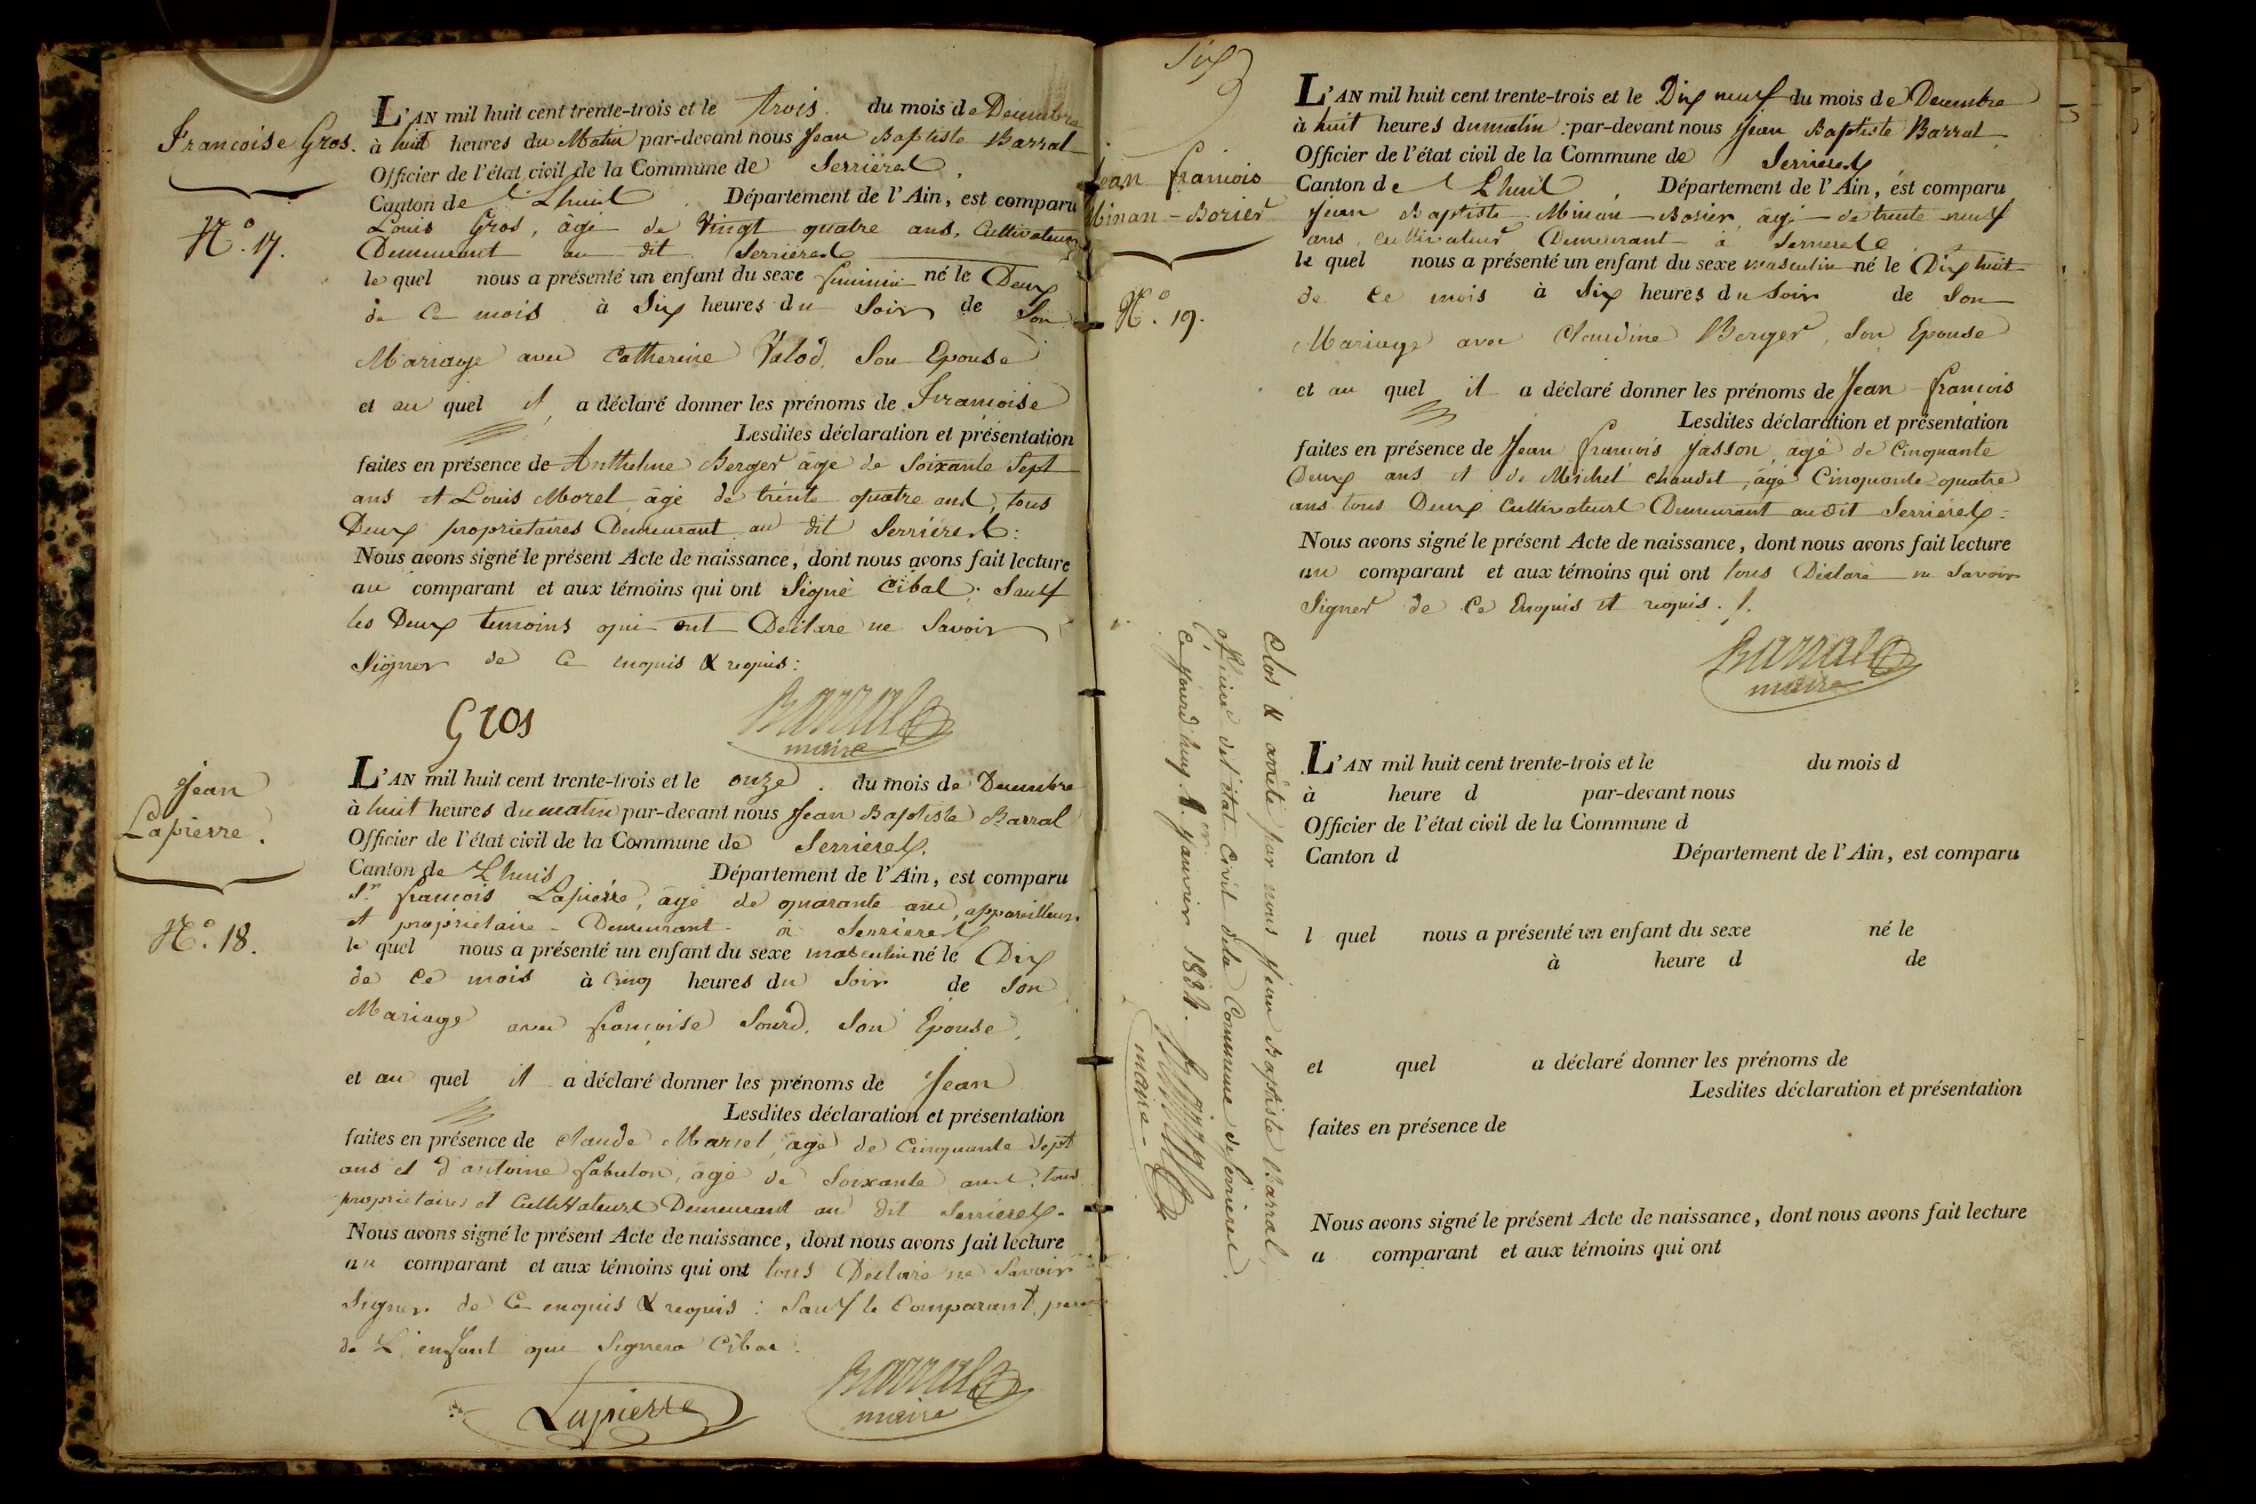 Francoise Gros.
N.° 17.
L'AN mil huit cent trente-trois et le trois du mois de Decembre
à huit heures du Matin par-devant nous Jean Baptiste Barral
Officier de l'état civil de la Commune de Serrieres
Canton de Lhuis Département de l'Ain, est comparu
Louis Gros, âgé de Vingt quatre ans, Cultivateur
Demeurant au dit Serrieres
le quel nous a présenté un enfant du sexe feminin né le Deux
de Ce mois à Six heures du Soir de Son
Mariage avec Catherine Valod, Son Epouse
et au quel il a déclaré donner les prénoms de Francoise
Lesdites déclaration et présentation
faites en présence de Anthelme Berger âgé de Soixante Sept
ans et Louis Morel âgé de trente quatre ans, tous
Deux proprietaires Demeurant au dit Serrieres :
Nous avons signé le présent Acte de naissance, dont nous avons fait lecture
au comparant et aux témoins qui ont Signé Cibal. Sauf
les Deux temoins qui ont Declare ne Savoir
Signer de Ce enquis & requis :
Gros
Barral
maire
Jean
Lapierre.
N.° 18.
L'AN mil huit cent trente-trois et le onze du mois de Decembre
à huit heures du matin par-devant nous Jean Baptiste Barral
Officier de l'état civil de la Commune de Serrieres.
Canton de Lhuis Département de l'Ain, est comparu
S.r francois Lapierre, âgé de quarante ans, appareilleur
et proprietaire Demeurant à Serrieres
le quel nous a présenté un enfant du sexe masculin né le Dix
de Ce mois à Cinq heures du Soir de Son
Mariage avec francoise Sourd, Son Epouse,
et au quel il a déclaré donner les prénoms de Jean
Lesdites déclaration et présentation
faites en présence de Claude Marcel, âgé de Cinquante Sept
ans et d'antoine fabulon, âgé de Soixante ans, tous
proprietaires et Cultivateurs Demeurant au dit Serrieres.
Nous avons signé le présent Acte de naissance, dont nous avons fait lecture
au comparant et aux témoins qui ont tous Declare ne Savoir
Signer de Ce enquis & requis : Sauf le Comparant, pere
de L'enfant qui Signera Cibas.
Lapierre
Barral
maire
Six
Jean francois
Minan-Bozier
N.° 19.
L'AN mil huit cent trente-trois et le Dix neuf du mois de Decembre
à huit heures du matin par-devant nous Jean Baptiste Barral
Officier de l'état civil de la Commune de Serrieres
Canton de Lhuis Département de l'Ain, est comparu
Jean Baptiste Minan-Bozier, âgé de trente neuf
ans, cultivateur Demeurant à Serrieres
le quel nous a présenté un enfant du sexe masculin né le Dix huit
de Ce mois à Six heures du Soir de Son
Mariage avec Claudine Berger, Son Epouse
et au quel il a déclaré donner les prénoms de Jean francois
Lesdites déclaration et présentation
faites en présence de Jean francois Jasson, âgé de Cinquante
Deux ans et de Michel Chaudet, âgé Cinquante quatre
ans tous Deux Cultivateurs Demeurant audit Serrieres.
Nous avons signé le présent Acte de naissance, dont nous avons fait lecture
au comparant et aux témoins qui ont tous Declaré ne Savoir
Signer de Ce Enquis et requis ./.
Barral
maire
Clos & arrêté par nous Jean Baptiste Barral,
officier de l'état Civil de la Commune de Serrieres,
Ce Jourd'huy 1.er Janvier 1834.
Barral
maire
L'AN mil huit cent trente-trois et le du mois d
à heure d par-devant nous
Officier de l'état civil de la Commune d
Canton d Département de l'Ain, est comparu
l quel nous a présenté un enfant du sexe né le
à heure d de
et quel a déclaré donner les prénoms de
Lesdites déclaration et présentation
faites en présence de
Nous avons signé le présent Acte de naissance, dont nous avons fait lecture
a comparant et aux témoins qui ont